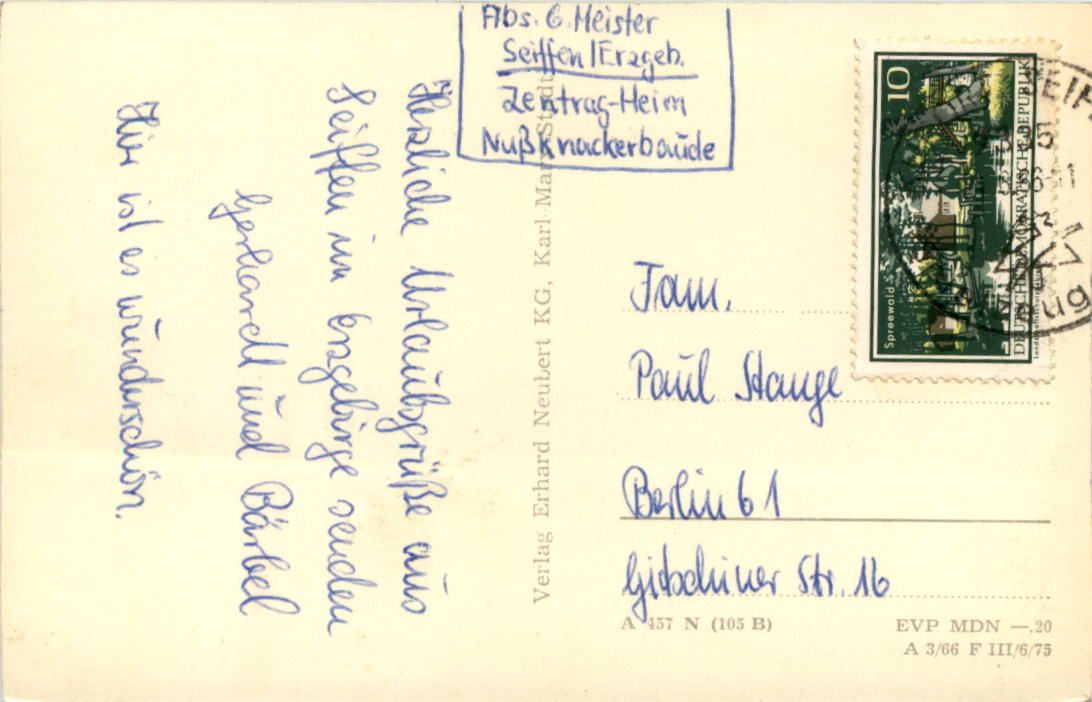 Abs. G. Meister
Seiffen/Erzgeb.
Zentrag-Heim
Nußknackerbaude
Herzliche Urlaubsgrüße aus
Seiffen im Erzgebirge senden
Gerhardt und Bärbel
Hier ist es wunderschön.
Verlag Erhard Neubert KG, Karl-Marx-Stadt
10
Spreewald
DEUTSCHE DEMOKRATISCHE REPUBLIK
Fam.
Paul Stange
Berlin 61
Gitschiner Str. 16
A 457 N (105 B)
EVP MDN —,20
A 3/66 F III/6/75